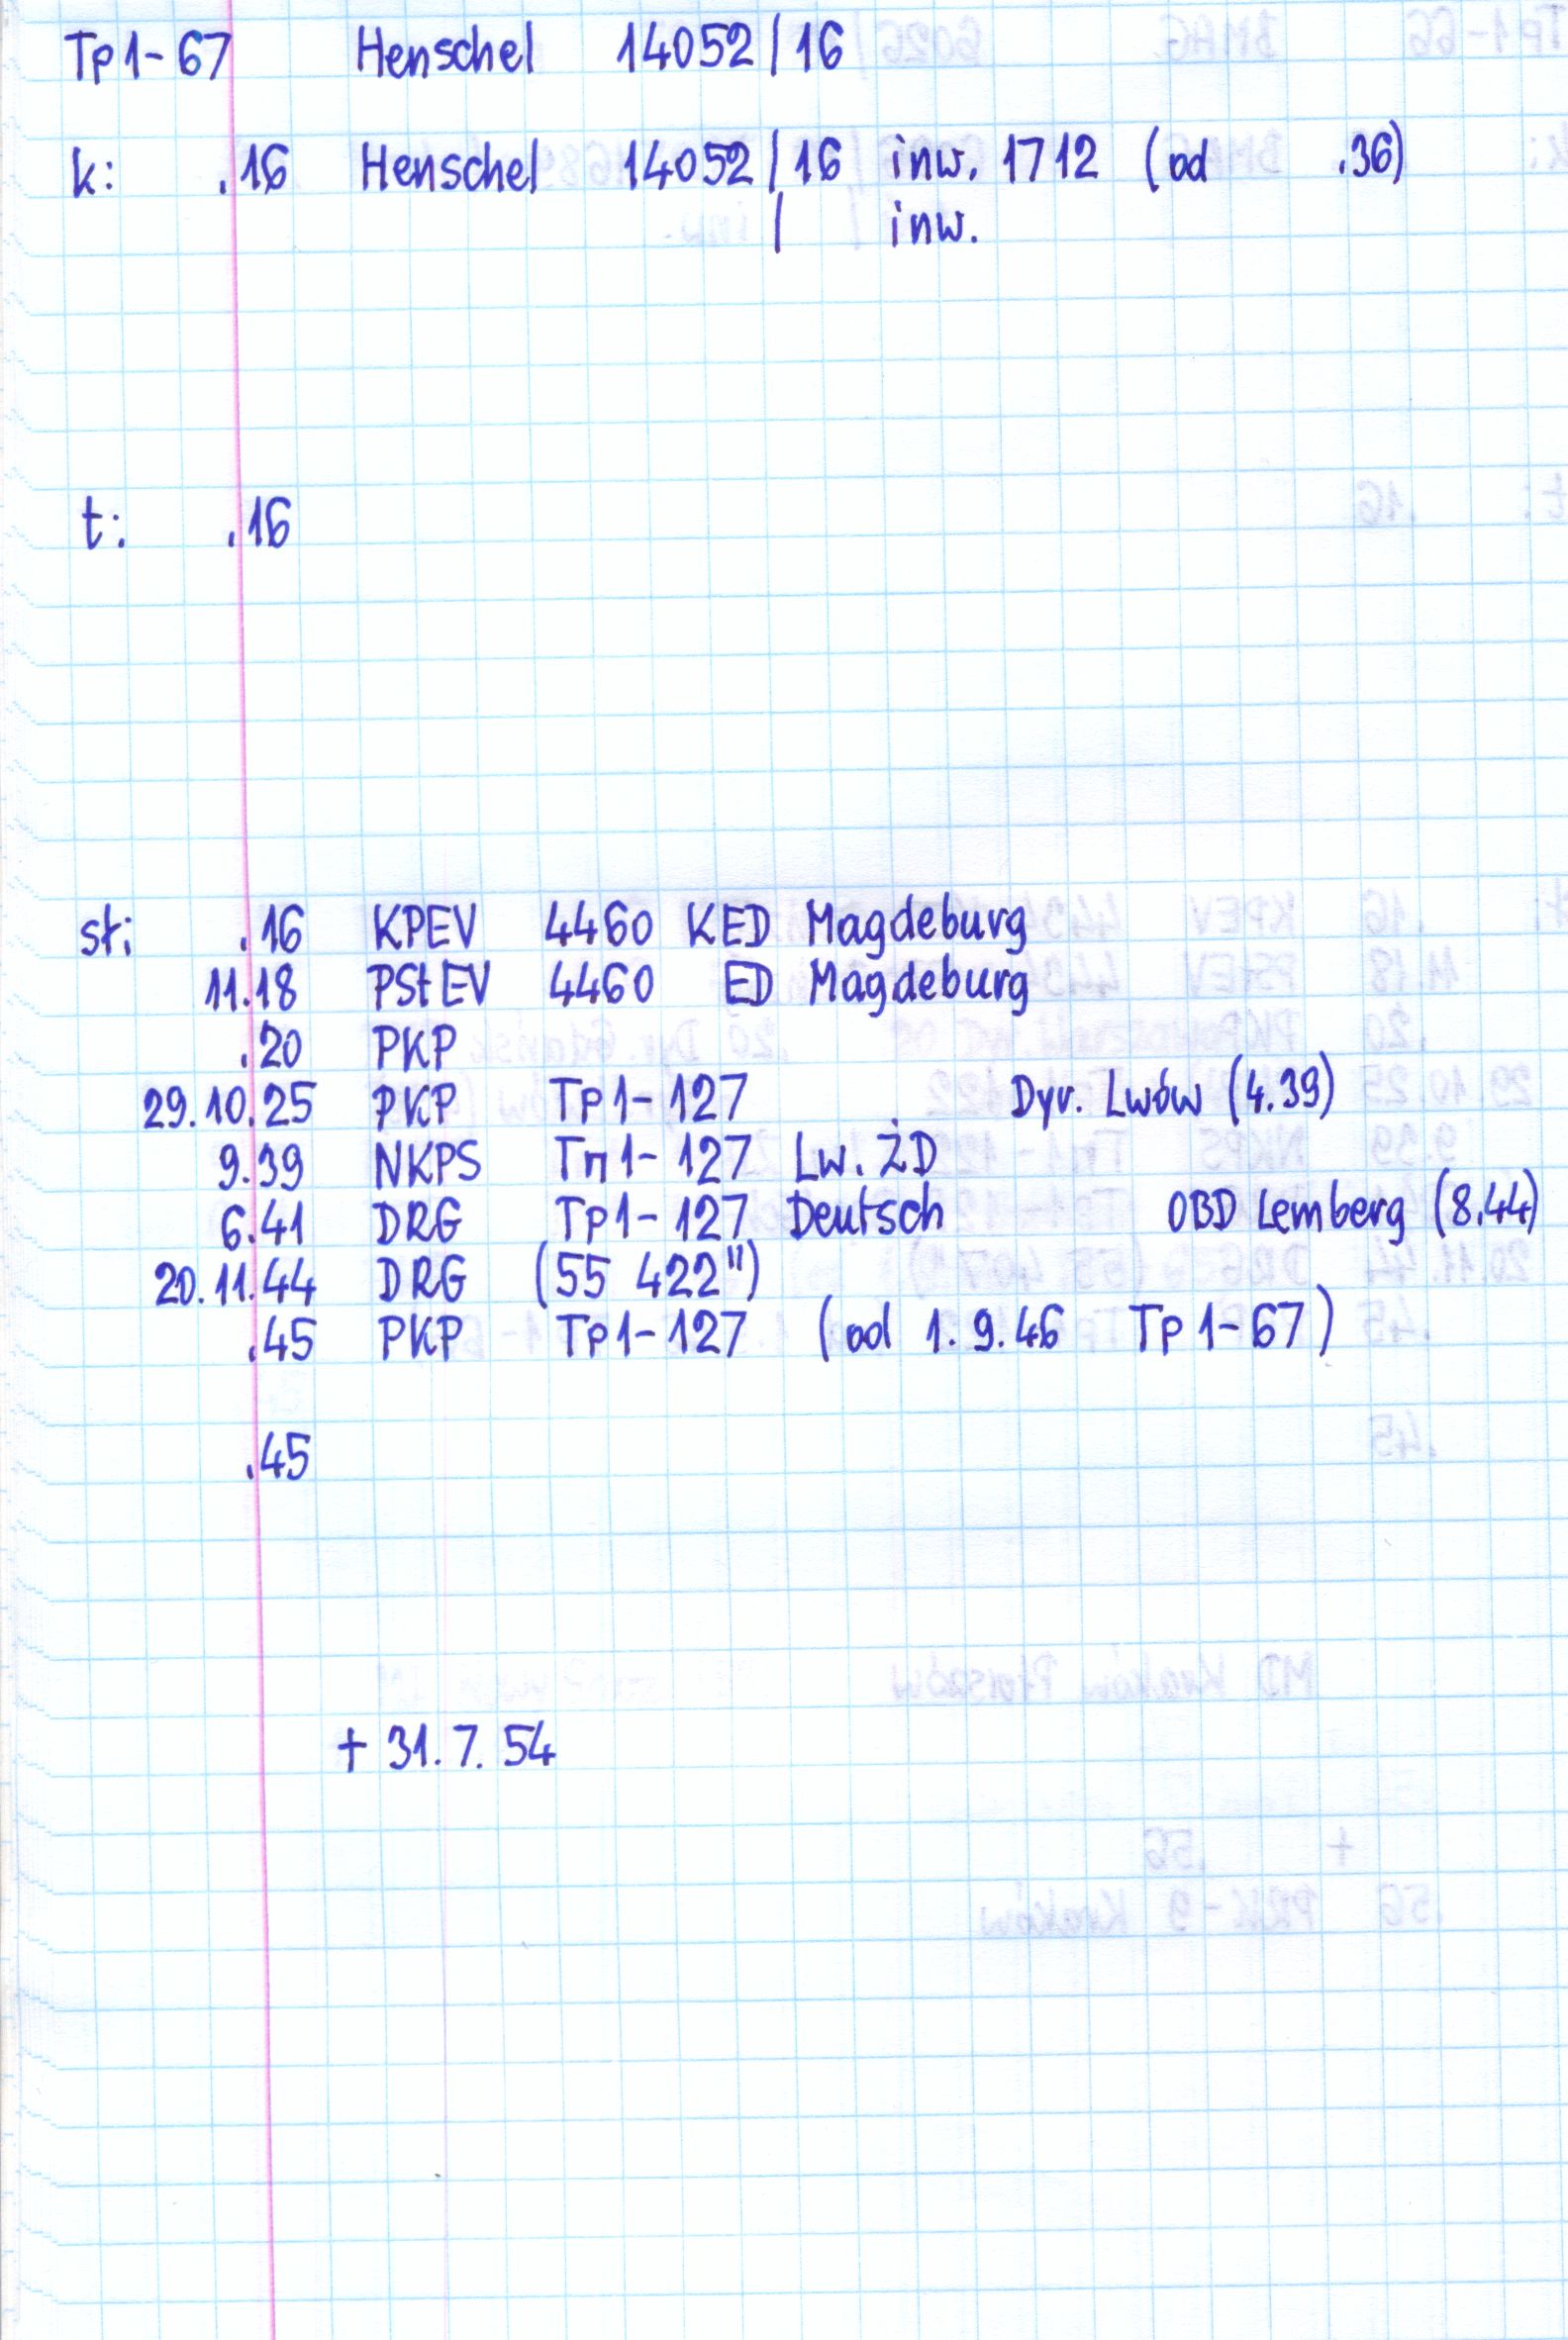 Tp1-67 Henschel 14052/16
k: .16 Henschel 14052/16 inw. 1712 (od .36)
/ inw.
t: .16
st: .16 KPEV 4460 KED Magdeburg
11.18 PStEV 4460 ED Magdeburg
.20 PKP
29.10.25 PKP Tp1-127 Dyr. Lwów (4.39)
9.39 NKPS Тп1-127 Lw. ŻD
6.41 DRG Tp1-127 Deutsch OBD Lemberg (8.44)
20.11.44 DRG (55 422")
.45 PKP Tp1-127 (od 1.9.46 Tp1-67)
.45
+ 31.7.54